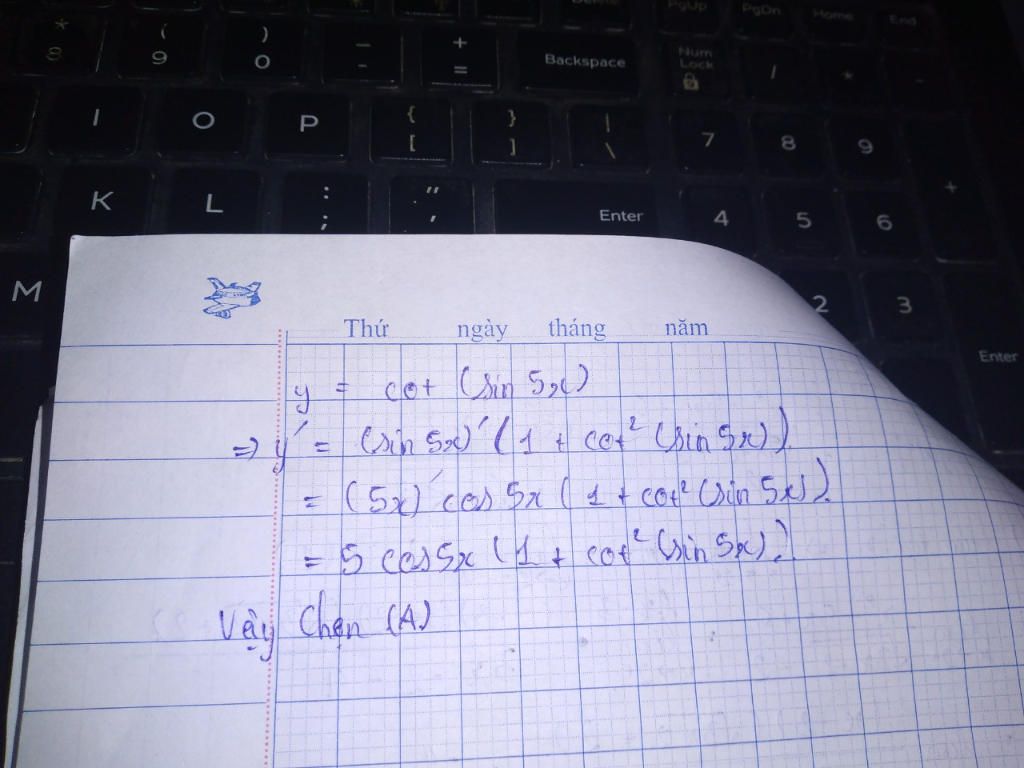 Delete PgUp PgDn Home End
* 8 ( 9 ) 0 _ - + = Backspace Num Lock / * -
I O P { [ } ] | \ 7 8 9 +
K L : ; " ' Enter 4 5 6
M 2 3 Enter
Thứ ngày tháng năm
y = cot (sin 5x)
⇒ y' = (sin 5x)' (1 + cot² (sin 5x))
= (5x)' cos 5x (1 + cot² (sin 5x)).
= 5 cos 5x (1 + cot² (sin 5x).)
Vậy Chọn (A)